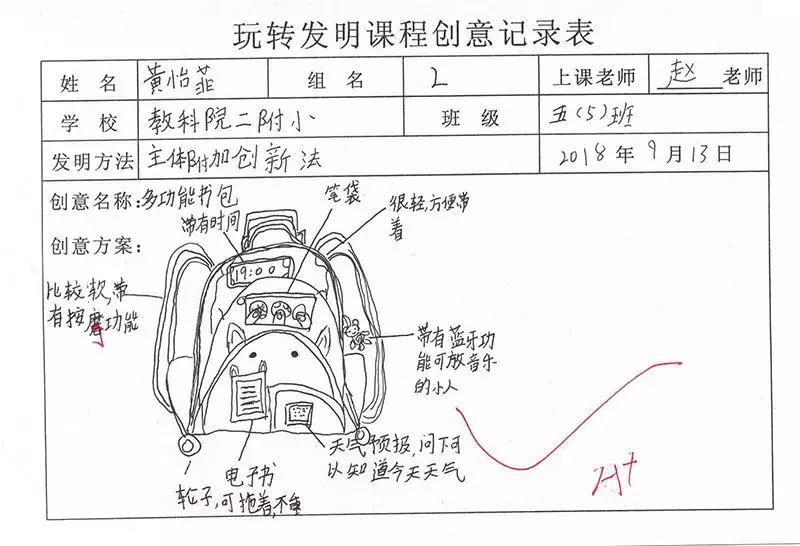 玩转发明课程创意记录表
姓名 黄怡菲 组名 2 上课老师 赵 老师
学校 教科院二附小 班级 五(5)班
发明方法 主体附加创新法 2018年9月13日
创意名称:多功能书包
创意方案:
带有时间
笔袋
很轻,方便带
着
19:00
比较软,带
有按摩功能
带有蓝牙功
能可放音乐
的小人
天气预报,问下可
以知道今天天气
电子书
轮子,可拖着,不重
A+